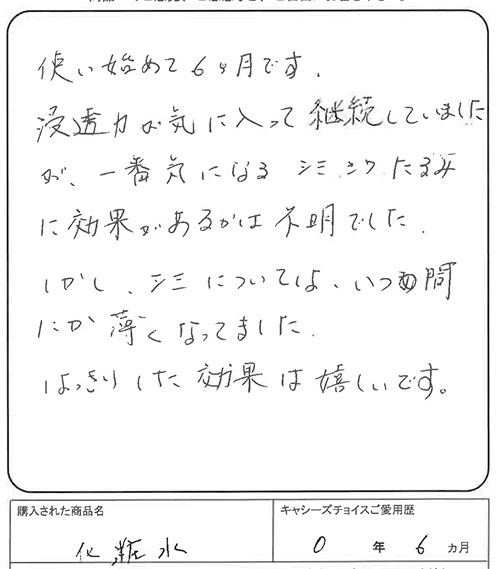 使い始めて6ヶ月です.
浸透力が気に入って継続していました
が、一番気になる シミ.シワ.たるみ
に効果があるかは不明でした.
しかし、シミについては、いつの間
にか薄くなってました.
はっきりした効果は嬉しいです。
購入された商品名
キャシーズチョイスご愛用歴
化粧水
0 年 6 カ月